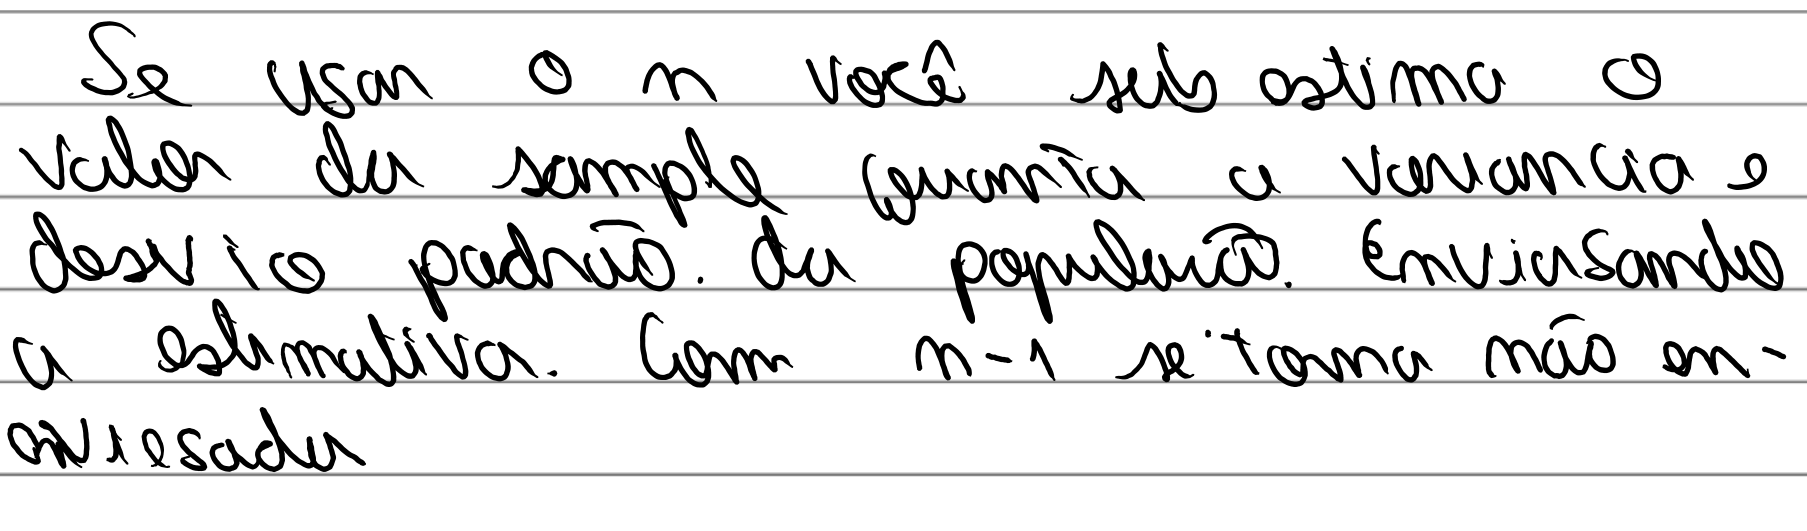 Se usar o n você sub estima o
valor da sample quanto a variancia e
desvio padrão. da população. Enviesando
a estimativa. Com n-1 se torna não en-
enviesada